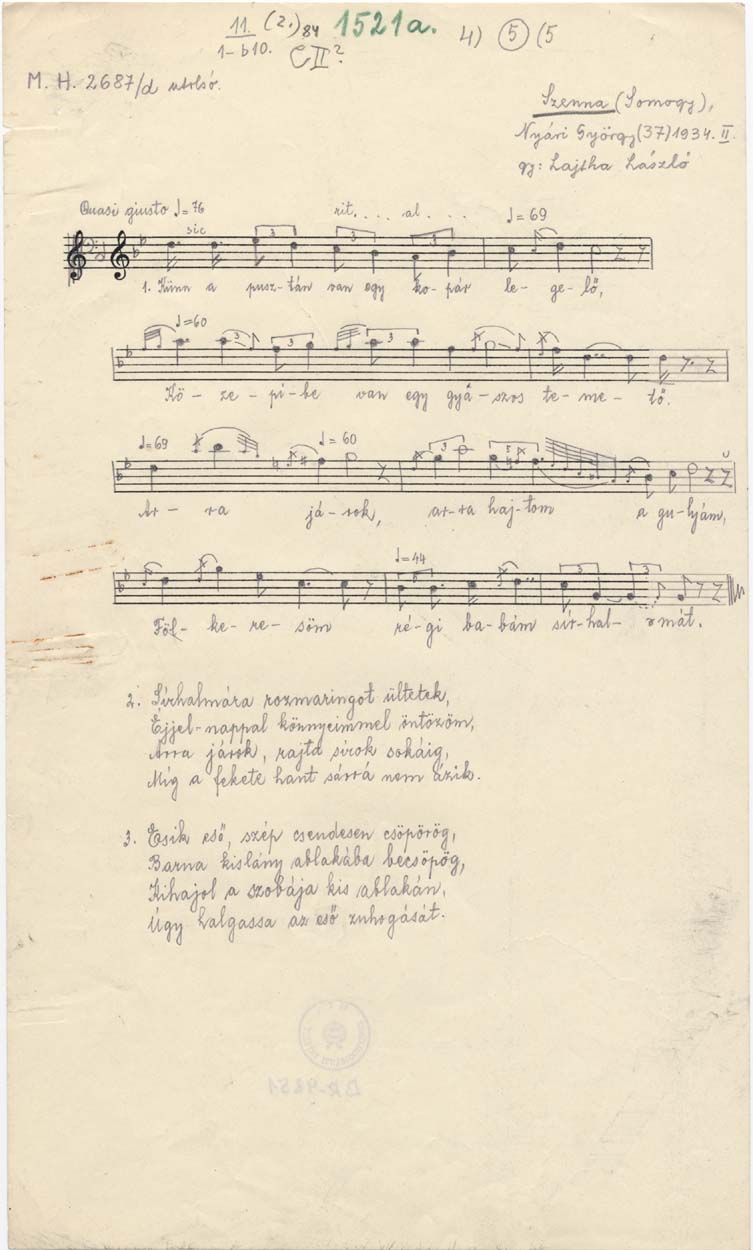 11. (2.) 84 1521a. 4) 5 (5
1-b10. CII?
M. H. 2687/d utolsó.
Szenna (Somogy),
Nyári György (37) 1934. II.
gy: Lajtha László
Quasi giusto ♩= 76 rit. . . . al . . . ♩= 69
sic
3 3 3
1. Künn a pusz-tán van egy ko-pár le-ge-lő,
♩= 60
3 3 3 3
Kö-ze-pi-be van egy gyá-szos te-me-tő.
♩= 69 ♩= 60
3 5
Ar-ra já-rok, ar-ra haj-tom a gu-lyám,
♩= 44
3 3 3
Föl-ke-re-söm ré-gi ba-bám sír-hal-mát.
2. Sírhalmára rozmaringot ültetek,
Éjjel-nappal könnyeimmel öntözöm,
Arra járok, rajta sírok sokáig,
Míg a fekete hant sárrá nem ázik.
3. Esik eső, szép csendesen csöpörög,
Barna kislány ablakába becsöpög,
Kihajol a szobája kis ablakán,
Úgy halgassa az eső zuhogását.